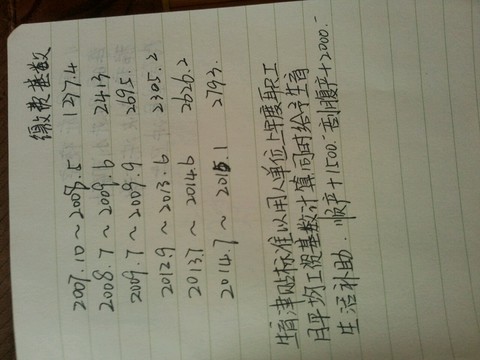 缴费基数
2007.10~2008.5 1277.4
2008.7~2009.6 2413.
2009.7~2009.9 2695.
2012.9~2013.6 2305.2
2013.7~2014.6 2626.2
2014.7~2015.1 2793.
生育津贴标准以用人单位上年度职工
月平均工资基数计算同时给予生育
生活补助. 顺产+1500.- 剖腹产+2000.-